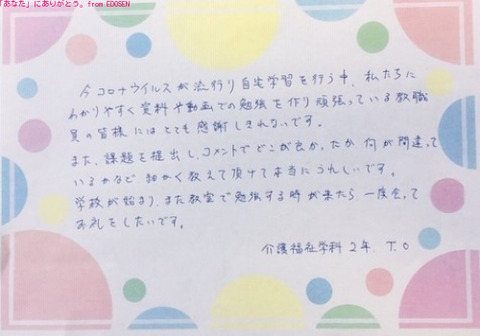 「あなた」にありがとう。from EDOSEN
今コロナウイルスが流行り自宅学習を行う中、私たちに
わかりやすく資料や動画での勉強を作り頑張っている教職
員の皆様にはとても感謝しきれないです。
また、課題を提出し、コメントでどこが良かったか何が間違って
いるかなど細かく教えて頂けて本当にうれしいです。
学校が始まり、また教室で勉強する時が来たら一度会って
お礼をしたいです。
介護福祉学科2年. T.O